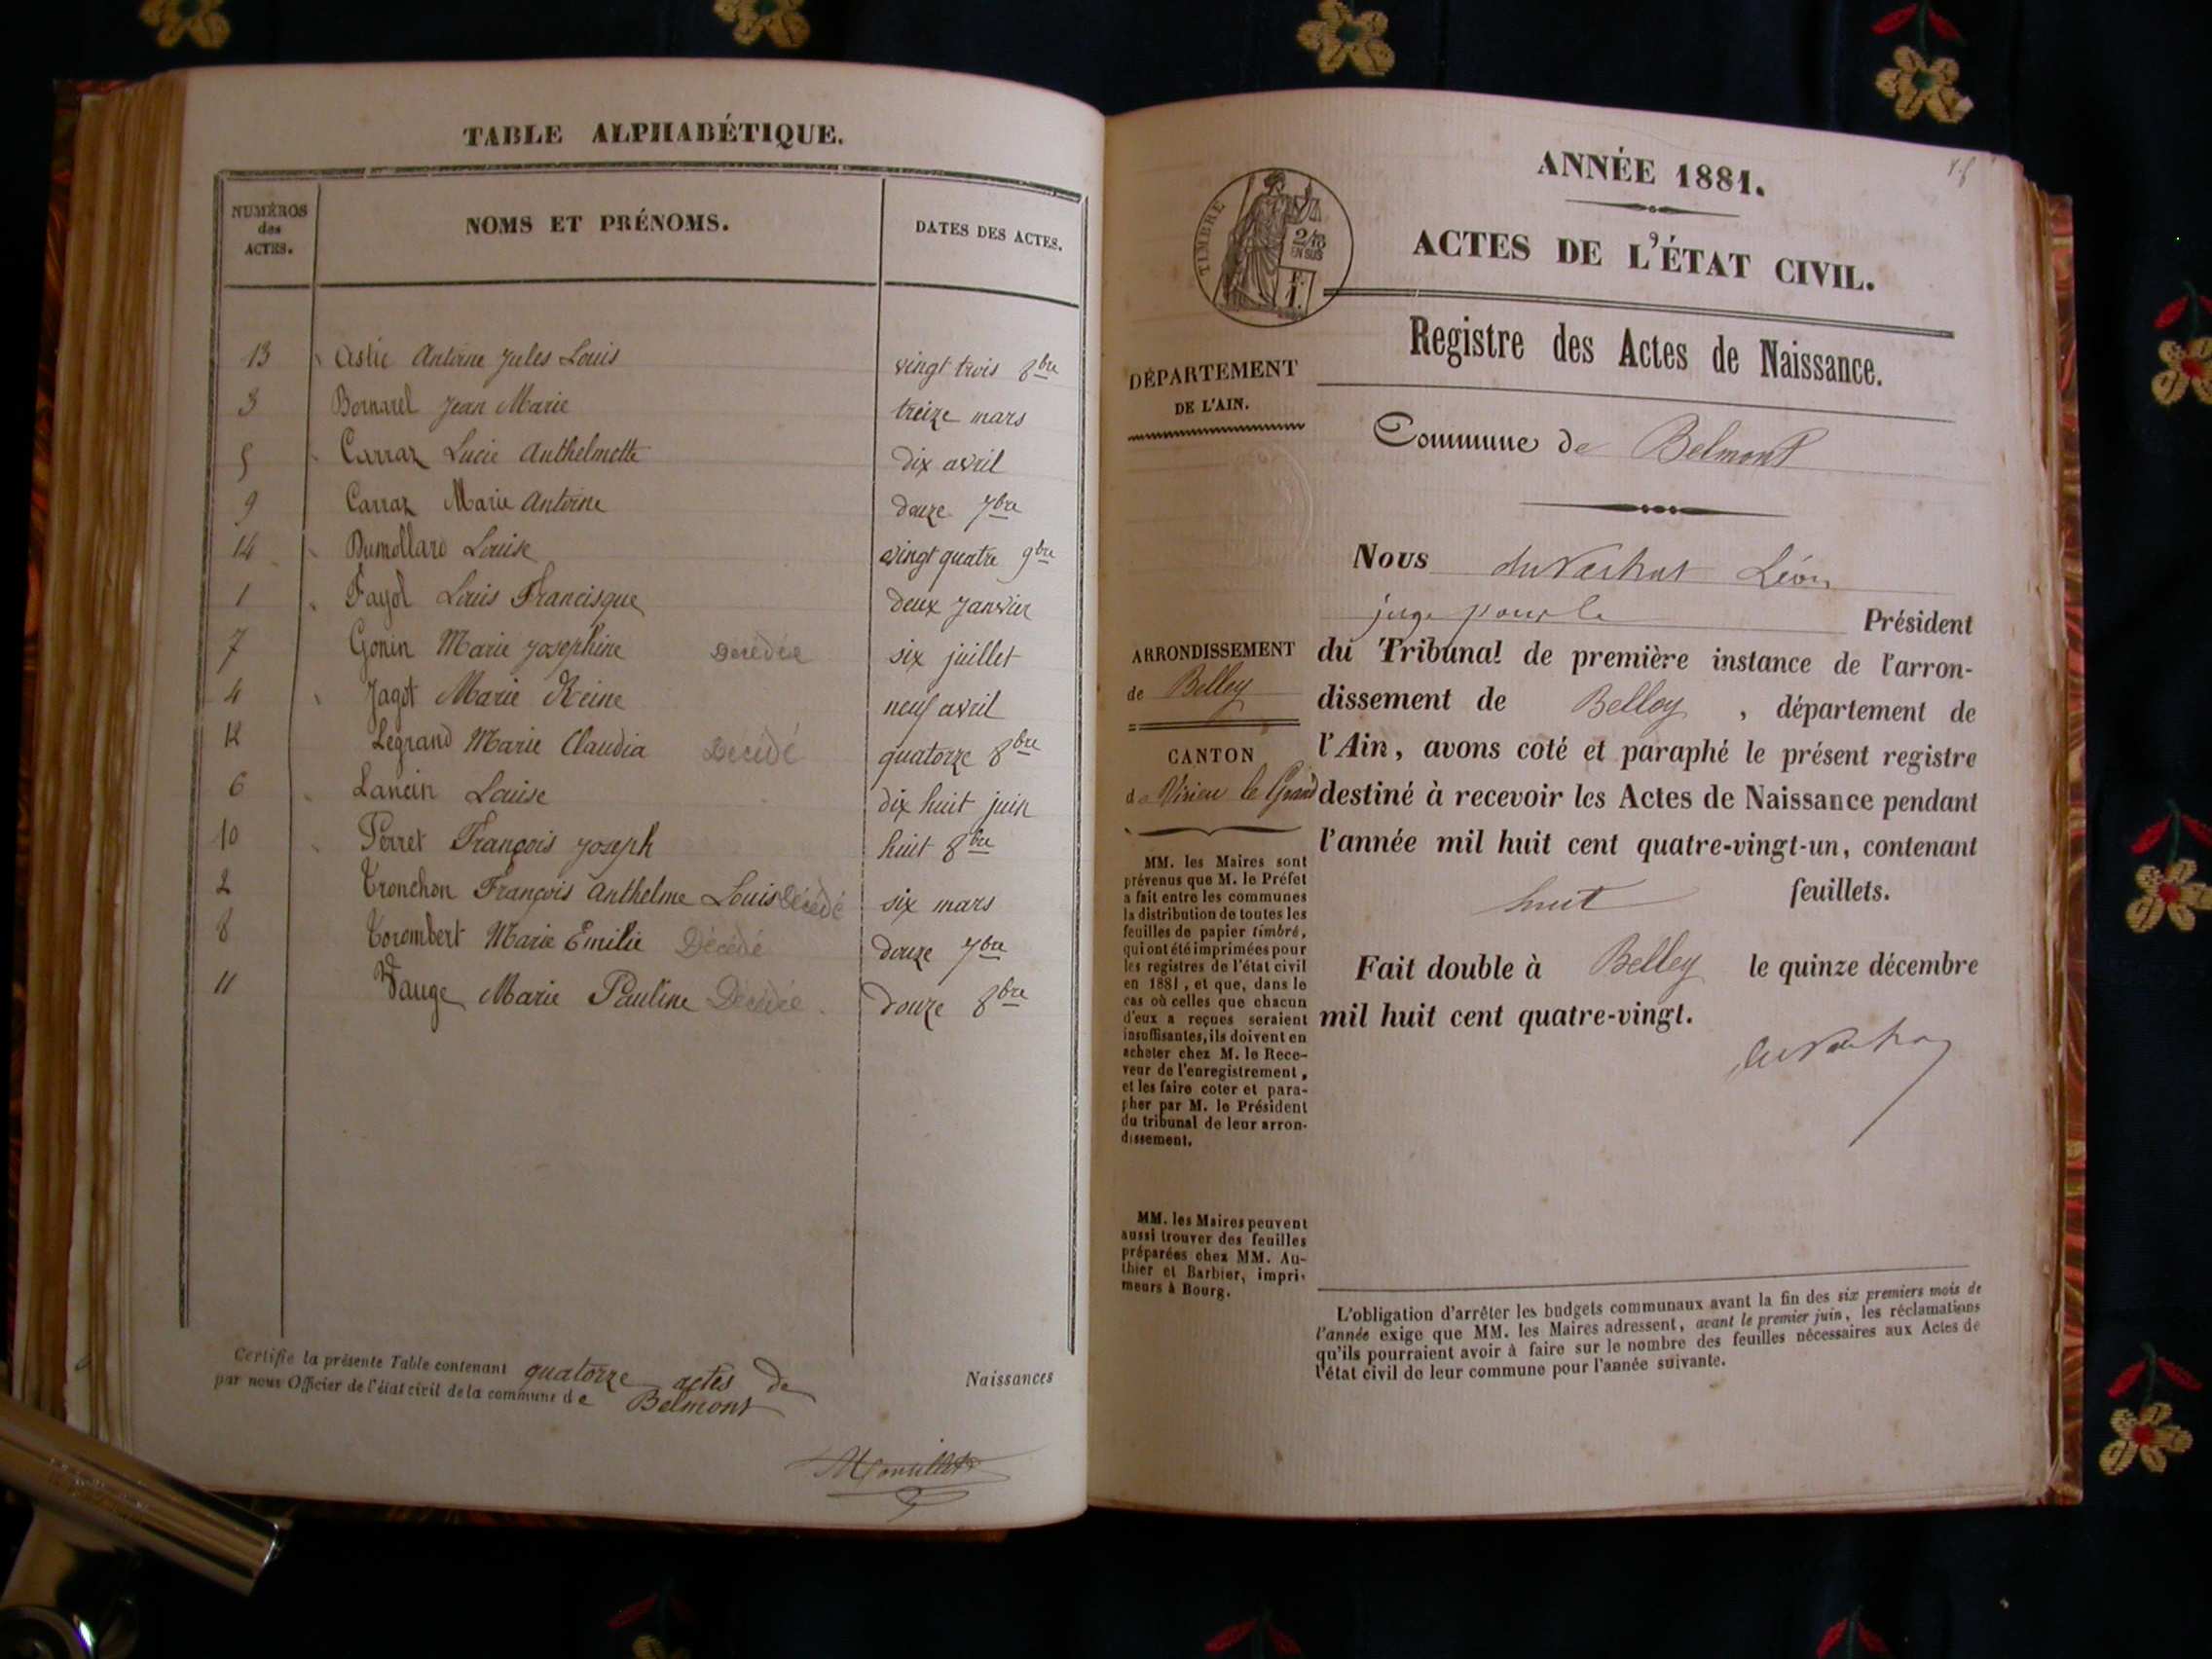 TABLE ALPHABÉTIQUE.
NUMÉROS
des
ACTES.
NOMS ET PRÉNOMS.
DATES DES ACTES.
13 Astic Antoine Jules Louis vingt trois 8bre
3 Bornarel Jean Marie treize mars
5 Carraz Lucie Anthelmette dix avril
9 Carraz Marie Antoine douze 7bre
14 Dumollard Louise vingt quatre 9bre
1 Fayol Louis Francisque deux Janvier
7 Gonin Marie Josephine Décédée six juillet
4 Jagot Marie Reine neuf avril
12 Legrand Marie Claudia Décédé quatorze 8bre
6 Lancin Louise dix huit juin
10 Perret François Joseph huit 8bre
2 Tronchon François Anthelme Louis Décédé six mars
8 Torombert Marie Emilie Décédé douze 7bre
11 Vauge Marie Pauline Décédée douze 8bre
Certifié la présente Table contenant quatorze actes de Naissances
par nous Officier de l'état civil de la commune de Belmont
ANNÉE 1881.
ACTES DE L'ÉTAT CIVIL.
TIMBRE
2/10
EN SUS
F.
1.
Registre des Actes de Naissance.
DÉPARTEMENT
DE L'AIN.
Commune de Belmont
Nous Léon
juge pour le Président
ARRONDISSEMENT
de Belley
CANTON
de Virieu le Grand
du Tribunal de première instance de l'arron-
dissement de Belley, département de
l'Ain, avons coté et paraphé le présent registre
destiné à recevoir les Actes de Naissance pendant
l'année mil huit cent quatre-vingt-un, contenant
huit feuillets.
Fait double à Belley le quinze décembre
mil huit cent quatre-vingt.
MM. les Maires sont
prévenus que M. le Préfet
a fait entre les communes
la distribution de toutes les
feuilles de papier timbré,
qui ont été imprimées pour
les registres de l'état civil
en 1881, et que, dans le
cas où celles que chacun
d'eux a reçues seraient
insuffisantes, ils doivent en
acheter chez M. le Rece-
veur de l'enregistrement,
et les faire coter et para-
pher par M. le Président
du tribunal de leur arron-
dissement.
MM. les Maires peuvent
aussi trouver des feuilles
préparées chez MM. Au-
thier et Barbier, impri-
meurs à Bourg.
L'obligation d'arrêter les budgets communaux avant la fin des six premiers mois de
l'année exige que MM. les Maires adressent, avant le premier juin, les réclamations
qu'ils pourraient avoir à faire sur le nombre des feuilles nécessaires aux Actes de
l'état civil de leur commune pour l'année suivante.